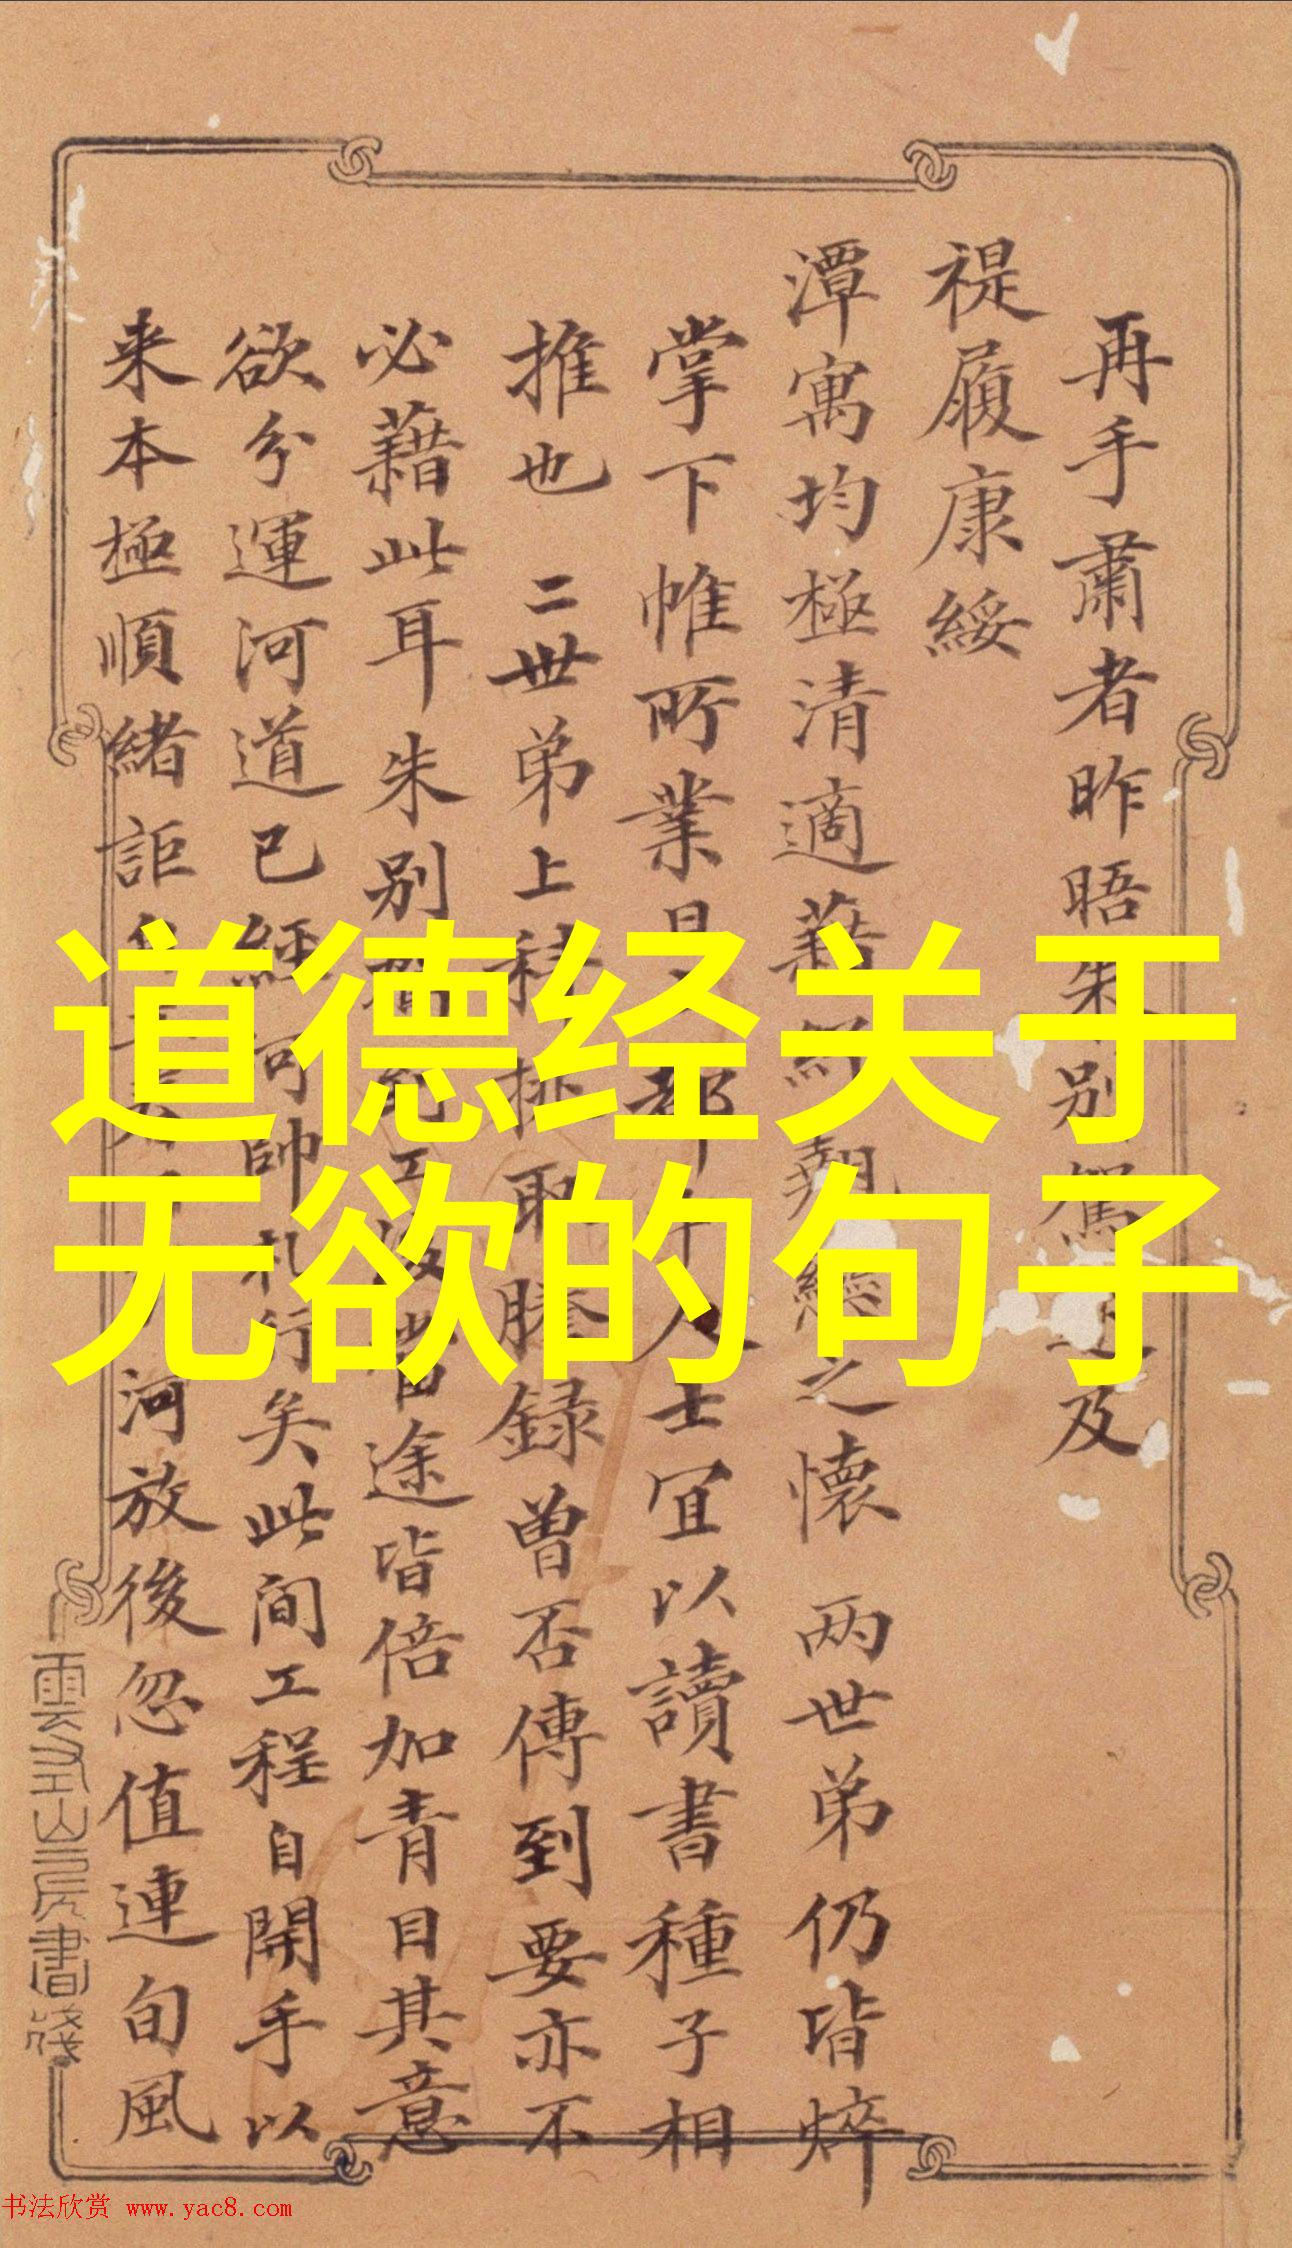 再手肅者昨晤朱别駕及
禔履康綏
潭寓均極清適藉之懷 两世弟仍皆焠
掌下帷所業人士宜以讀書種子相
推也 二世弟上取謄録曾否傳到要亦不
必藉此耳朱别途皆倍加青目其意
欲兮運河道已經帥札行矣此间工程自開手以
来本極順緒詎河放後忽值連旬風
雲山房書牋
道德经关于
无欲的句子
书法欣赏 www.yac8.com